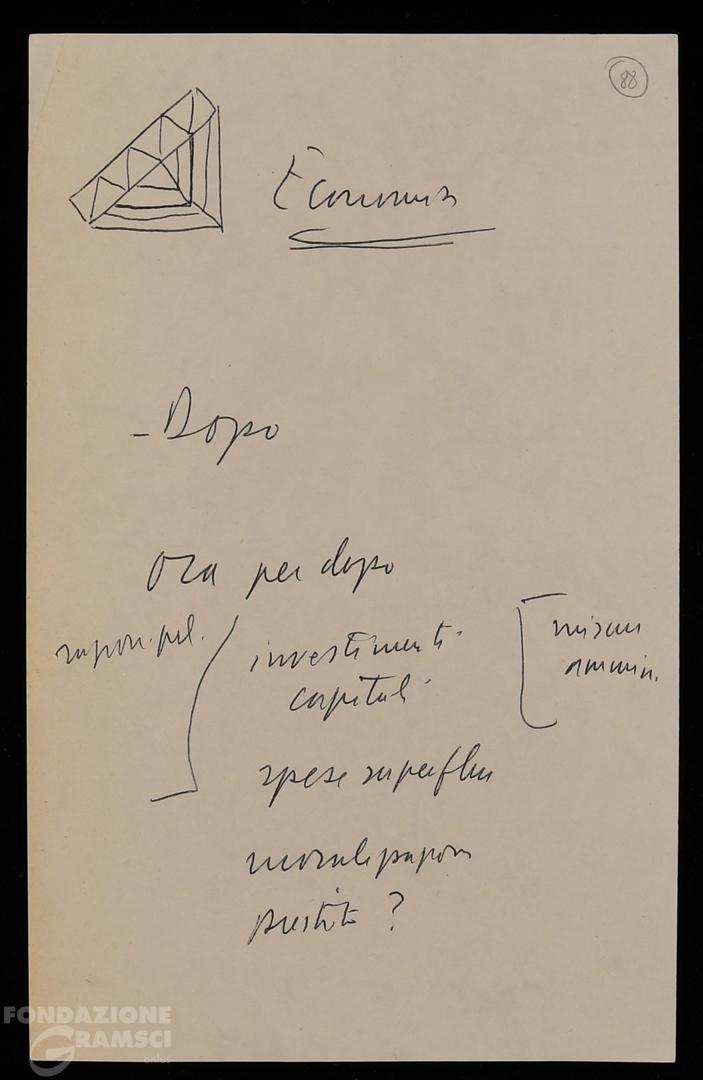 88
Economia
- Dopo
Ora per dopo
investimenti
capitali
misure
ammin.
spese superflue
prestito ?
FONDAZIONE
GRAMSCI
onlus